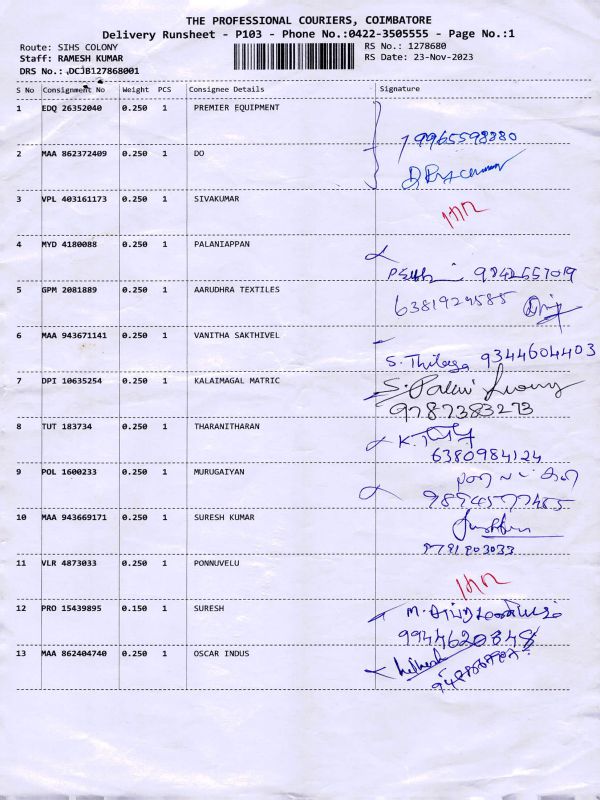 THE PROFESSIONAL COURIERS, COIMBATORE
Delivery Runsheet - P103 - Phone No.:0422-3505555 - Page No.:1
Route: SIHS COLONY
RS No.: 1278680
Staff: RAMESH KUMAR
RS Date: 23-Nov-2023
DRS No.: DCJB127868001
S No Consignment No Weight PCS Consignee Details Signature
1 EDQ 26352040 0.250 1 PREMIER EQUIPMENT
9965598880
2 MAA 862372409 0.250 1 DO
3 VPL 403161173 0.250 1 SIVAKUMAR
4 MYD 4180088 0.250 1 PALANIAPPAN
9842557019
5 GPM 2081889 0.250 1 AARUDHRA TEXTILES
6381929585
6 MAA 943671141 0.250 1 VANITHA SAKTHIVEL
S. Thilaga 9344604403
7 DPI 10635254 0.250 1 KALAIMAGAL MATRIC
9787383273
8 TUT 183734 0.250 1 THARANITHARAN
6380984124
9 POL 1600233 0.250 1 MURUGAIYAN
10 MAA 943669171 0.250 1 SURESH KUMAR
9791803033
11 VLR 4873033 0.250 1 PONNUVELU
12 PRO 15439895 0.150 1 SURESH
9944620848
13 MAA 862404740 0.250 1 OSCAR INDUS